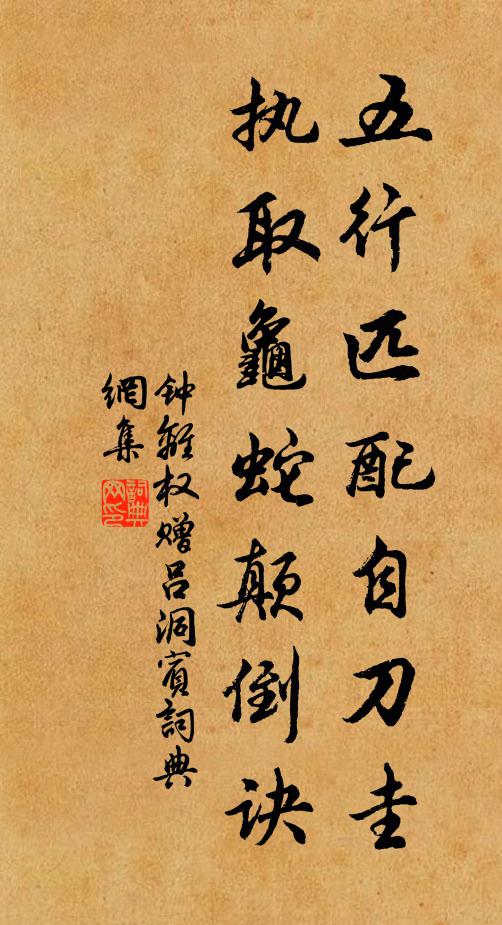 五行匹配自刀圭
执取龜蛇颠倒诀
钟離权赠吕洞賓詞典
網集
詞典
网印